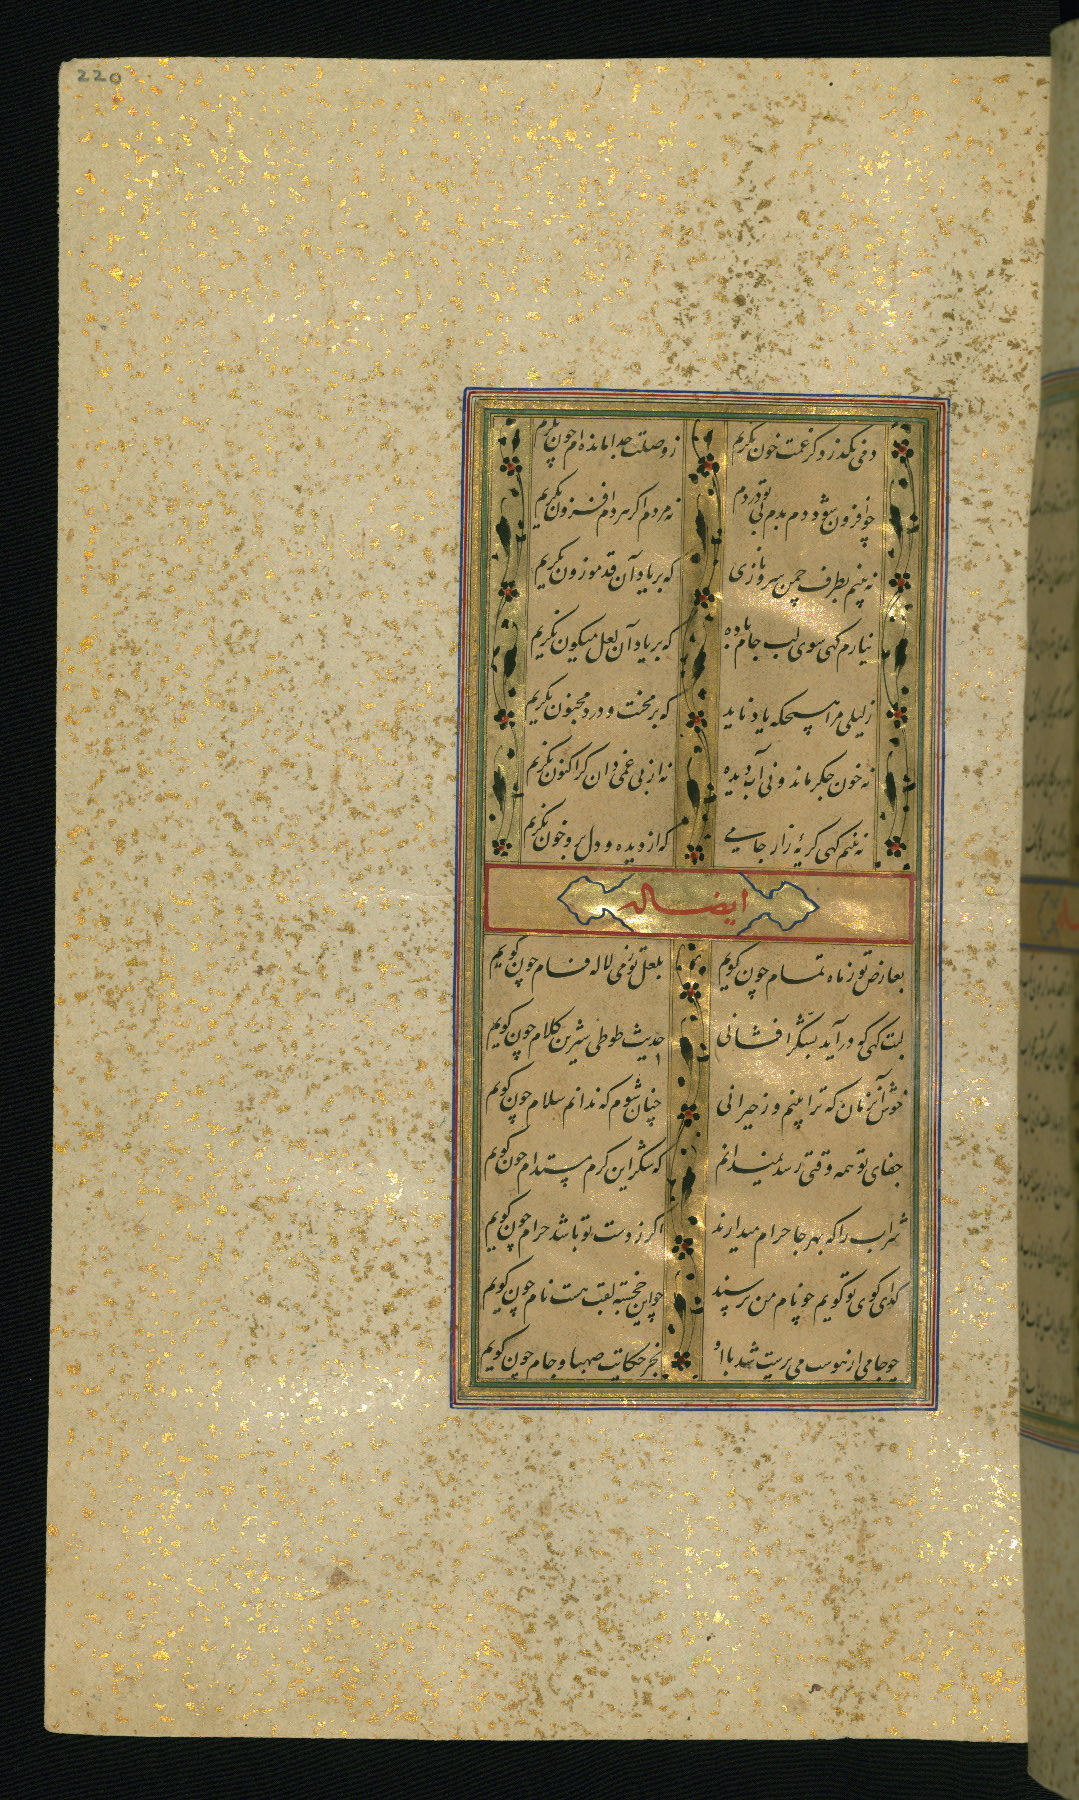 220
دمی نکذرد کز غمت خون نکریم ز وصلت جدا مانده‌ام چون نکریم
چو افزون شود دم بدم بی تو دردم نه مردم اکر هر دم افزون نکریم
نه بینم بطرف چمن سرو نازی که بر یاد آن قد موزون نکریم
نیارم کهی سوی لب جام باده که بر یاد آن لعل میکون نکریم
ز لیلی مرا هیچکه یاد ناید که بر محنت و درد مجنون نکریم
نه خون جکر ماند و نی آب دیده نه از بی غمی دان کر اکنون نکریم
نه بینم کهی کریهٔ زار جامی که از دیده و دل برو خون نکریم
ایضا له
بعارض تو ز ماه تمام چون کویم بلعل تو ز می لاله فام چون کویم
لبت کهی که در آید بشکر افشانی حدیث طوطی شیرین کلام چون کویم
خوش آن زمان که ترا بینم و ز حیرانی چنان شوم که ندانم سلام چون کویم
جفای تو همه وقتی رسد نمیدانم که شکر این کرم مستدام چون کویم
شراب را که بهر جا حرام میدارند اکر ز دست تو باشد حرام چون کویم
کدای کوی تو کویم چو نام من پرسند چو این خجسته لقب هست نام چون کویم
چو جامی از هوست می پرست شد با او بجز حکایت صهبا و جام چون کویم